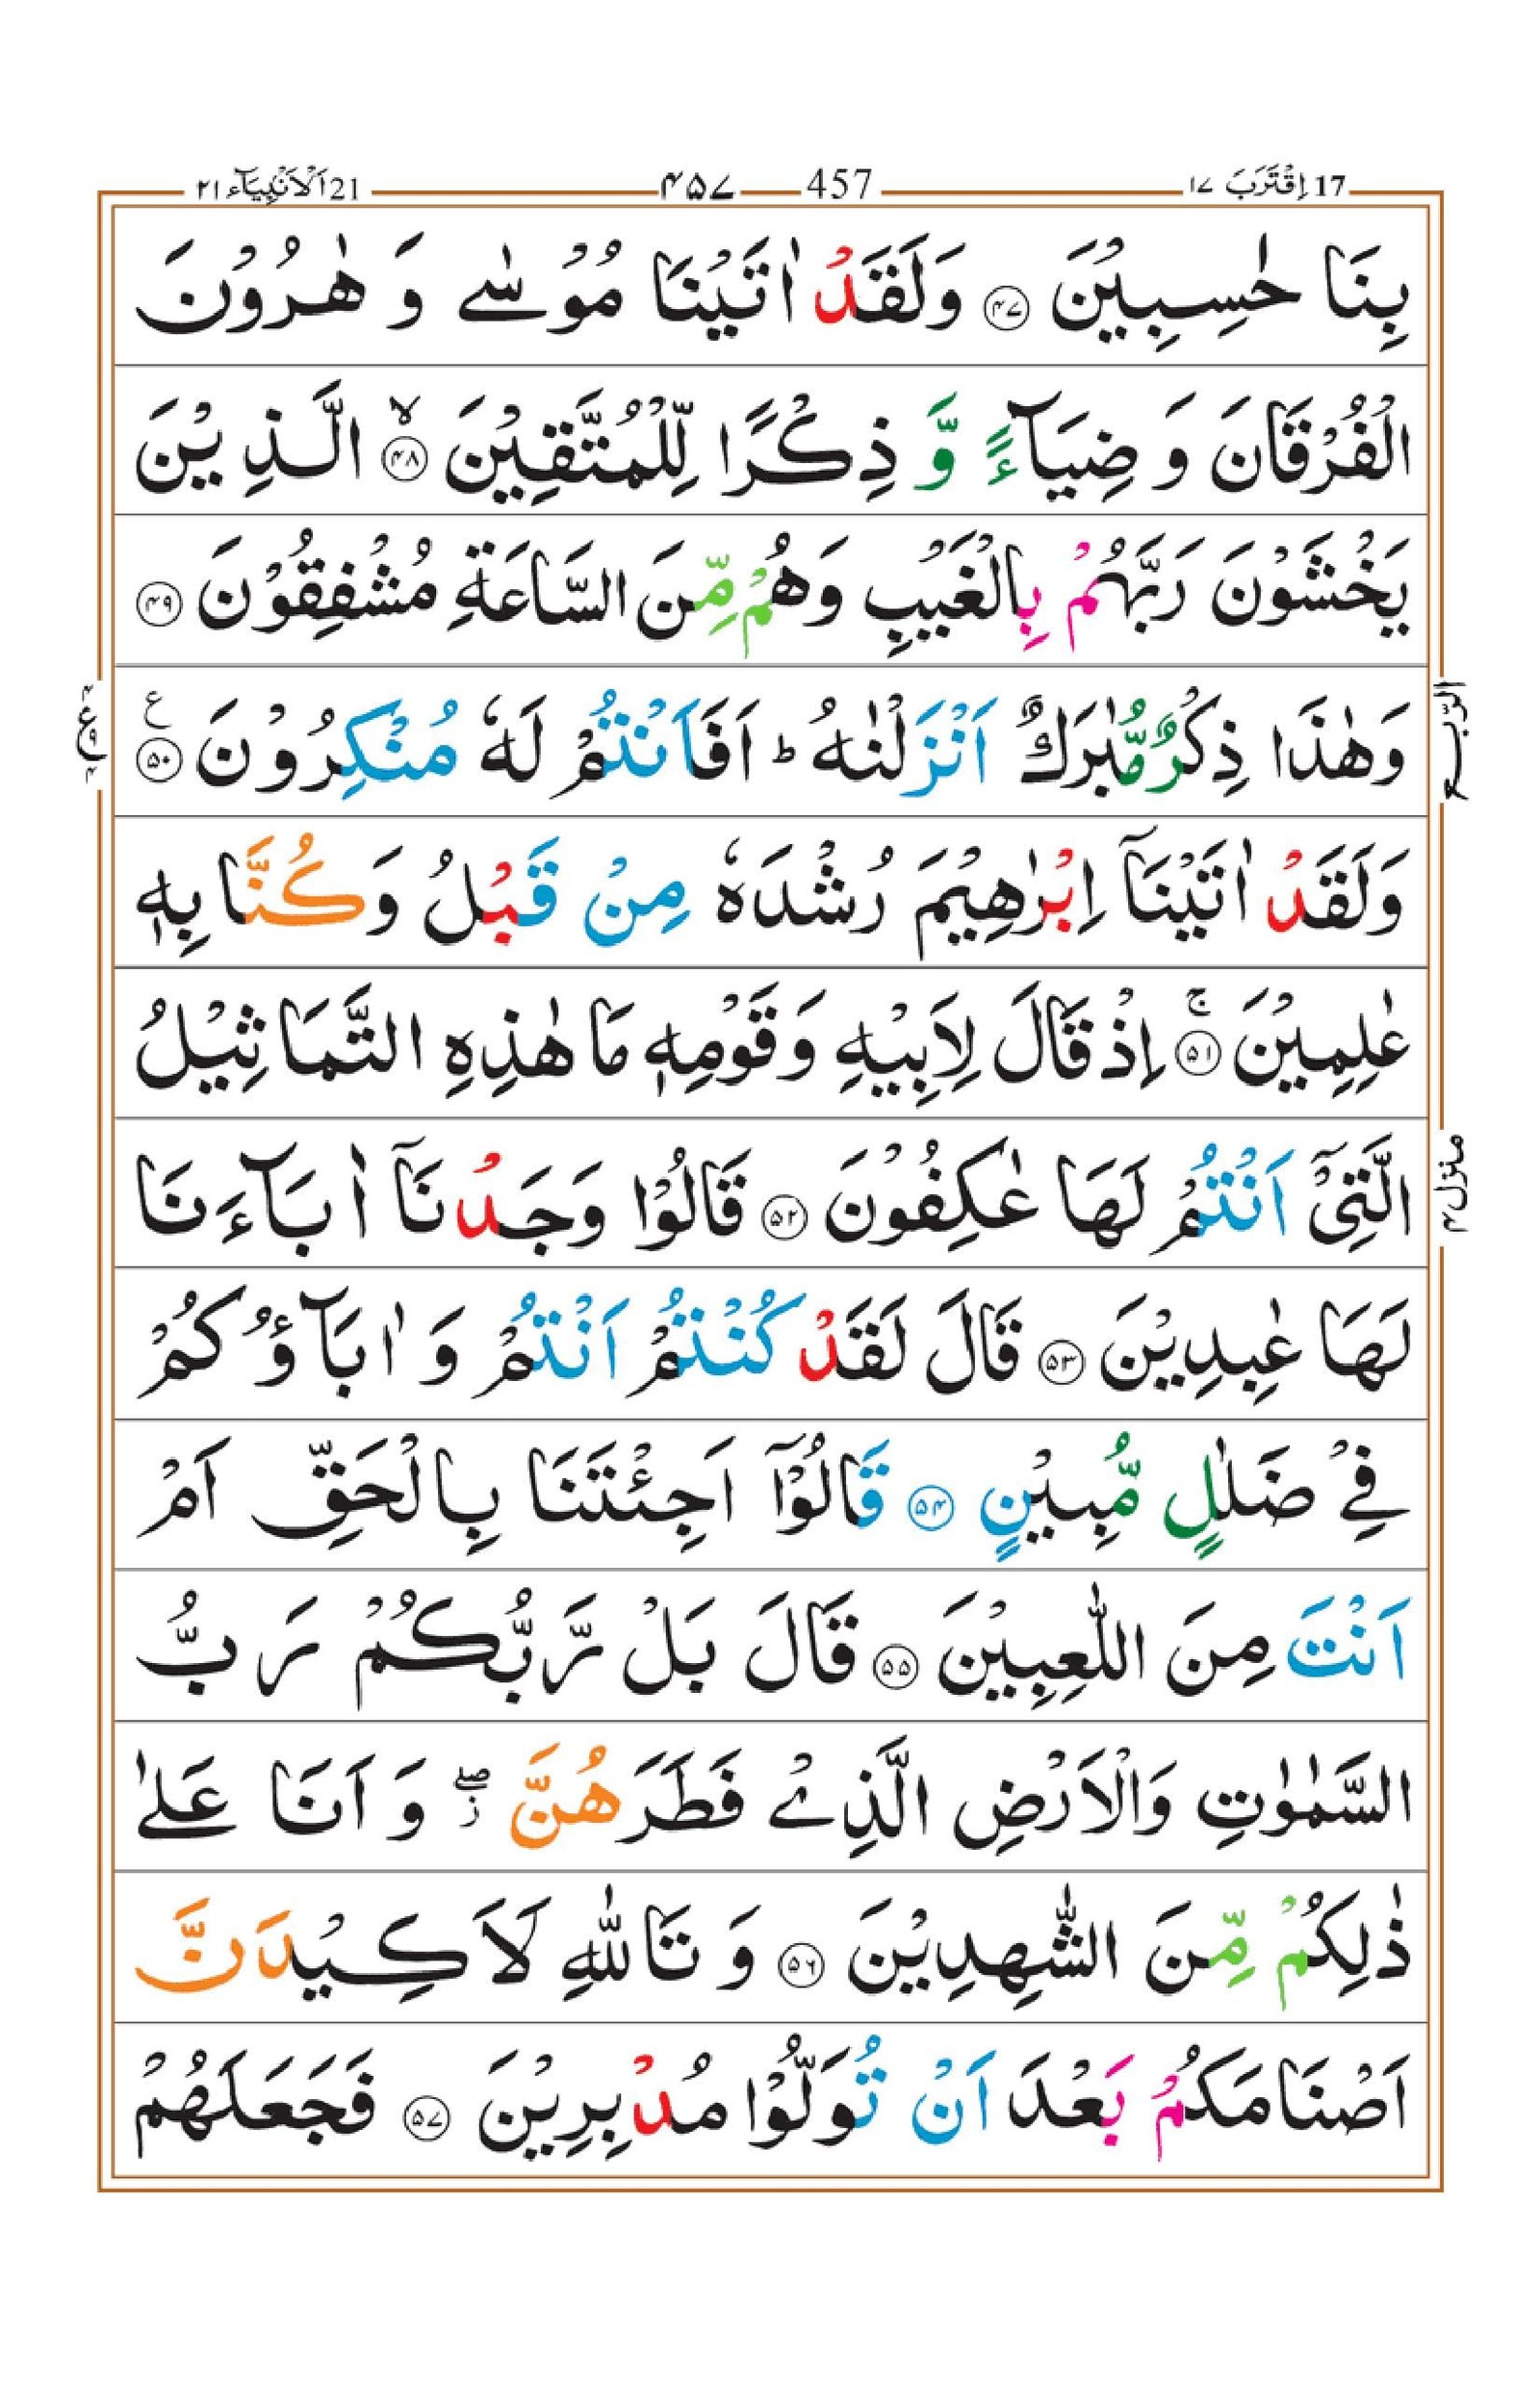 17 اِقْتَرَبَ ١٧
457 ۴۵۷
21 اَلْاَنْۢبِيَآء ٢١
بِنَا حٰسِبِيْنَ ﴿۴۷﴾ وَلَقَدْ اٰتَيْنَا مُوْسٰى وَ هٰرُوْنَ
الْفُرْقَانَ وَ ضِيَآءً وَّ ذِكْرًا لِّلْمُتَّقِيْنَ ﴿۴۸﴾ۙ الَّذِيْنَ
يَخْشَوْنَ رَبَّهُمْ بِالْغَيْبِ وَهُمْ مِّنَ السَّاعَةِ مُشْفِقُوْنَ ﴿۴۹﴾
وَهٰذَا ذِكْرٌ مُّبٰرَكٌ اَنْزَلْنٰهُ ؕ اَفَاَنْتُمْ لَهٗ مُنْكِرُوْنَ ﴿۵۰﴾ ع
وَلَقَدْ اٰتَيْنَآ اِبْرٰهِيْمَ رُشْدَهٗ مِنْ قَبْلُ وَكُنَّا بِهٖ
عٰلِمِيْنَ ﴿۵۱﴾ۚ اِذْ قَالَ لِاَبِيْهِ وَقَوْمِهٖ مَا هٰذِهِ التَّمَاثِيْلُ
الَّتِيْٓ اَنْتُمْ لَهَا عٰكِفُوْنَ ﴿۵۲﴾ قَالُوْا وَجَدْنَآ اٰبَآءَنَا
لَهَا عٰبِدِيْنَ ﴿۵۳﴾ قَالَ لَقَدْ كُنْتُمْ اَنْتُمْ وَ اٰبَآؤُكُمْ
فِيْ ضَلٰلٍ مُّبِيْنٍ ﴿۵۴﴾ قَالُوْٓا اَجِئْتَنَا بِالْحَقِّ اَمْ
اَنْتَ مِنَ اللّٰعِبِيْنَ ﴿۵۵﴾ قَالَ بَلْ رَّبُّكُمْ رَبُّ
السَّمٰوٰتِ وَالْاَرْضِ الَّذِيْ فَطَرَهُنَّ ۖز وَ اَنَا عَلٰى
ذٰلِكُمْ مِّنَ الشّٰهِدِيْنَ ﴿۵۶﴾ وَ تَاللّٰهِ لَاَكِيْدَنَّ
اَصْنَامَكُمْ بَعْدَ اَنْ تُوَلُّوْا مُدْبِرِيْنَ ﴿۵۷﴾ فَجَعَلَهُمْ
الرّبع
منزل ۴